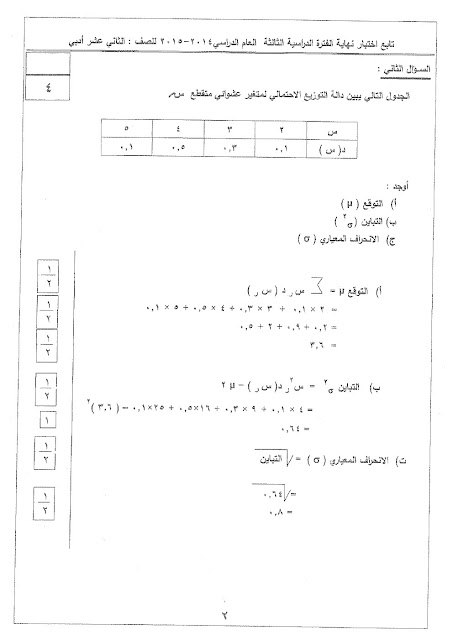 تابع اختبار نهاية الفترة الدراسية الثالثة العام الدراسي ٢٠١٤-٢٠١٥ للصف : الثاني عشر أدبي
السؤال الثاني :
٤
الجدول التالي يبين دالة التوزيع الاحتمالي لمتغير عشوائي متقطع س
س ٢ ٣ ٤ ٥
د( س ) ٠,١ ٠,٣ ٠,٥ ٠,١
أوجد :
أ) التوقع ( μ )
ب) التباين ( σ² )
ج) الانحراف المعياري ( σ )
أ) التوقع μ = ∑ س ر د ( س ر ) ١/٢
= ٢ × ٠,١ + ٣ × ٠,٣ + ٤ × ٠,٥ + ٥ × ٠,١ ١/٢
= ٠,٢ + ٠,٩ + ٢ + ٠,٥
= ٣,٦ ١/٢
ب) التباين σ² = س²ر د( س ر ) − μ ٢ ١/٢
= ٤ × ٠,١ + ٩ × ٠,٣ + ١٦×٠,٥ + ٢٥×٠,١ − ( ٣,٦ )² ١
= ٠,٦٤
ت) الانحراف المعياري ( σ ) = √التباين ١/٢
= √٠,٦٤ ١/٢
= ٠,٨
٢